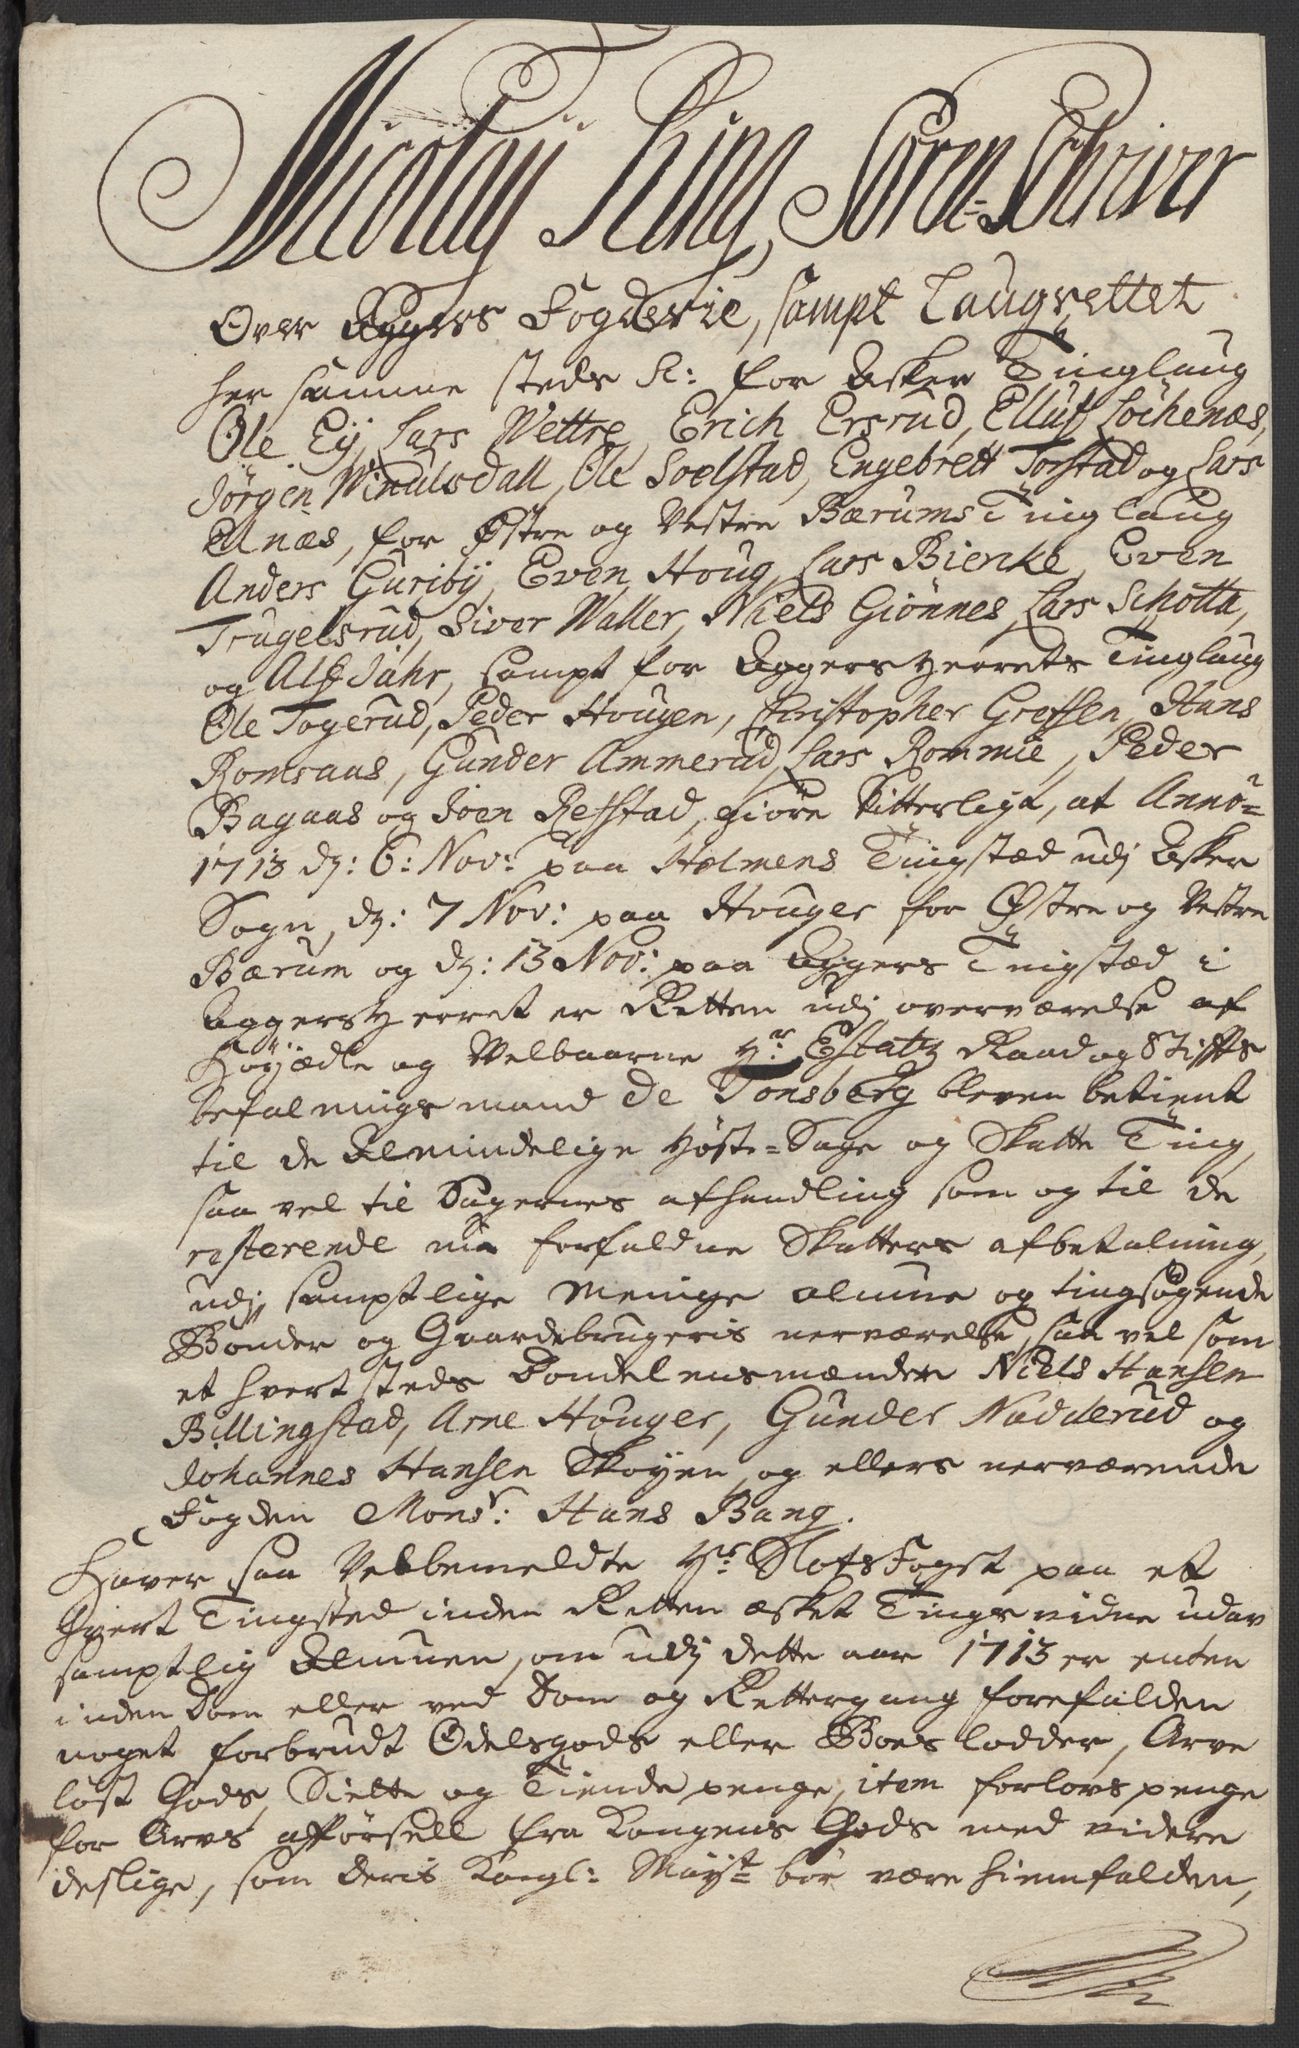 Nicolay Ring, Soren-Schriver
Over Aggers Fogderie, sampt Laugrettet
her samme steds Sc: for Asker Tinglaug
Ole Eÿ, Lars Wettre, Erich Ersrud, Elluf Löchenæs,
Jörgen Windulsdall, Ole Soelstad, Engebrett Torstad og Lars
Anæs, for Østre og Vestre Bærums Tinglaug
Anders Guribÿ, Even Houg, Lars Bienke, Even
Trugelsrud, Siver Waller, Niels Giönnes, Lars Schotta,
og Alf Jahr, sampt for Aggers Herrets Tinglaug
Ole Togerud, Peder Hougen, Christopher Greffen, Hans
Romsaas, Gunder Ammerud, Lars Rommie, Peder
Bagaas og Joen Refstad, giöre Vitterligt, at Anno
1713 dj: 6: Nov: paa Holmens Tingstæd udj Asker
Sogn, dj: 7 Nov: paa Houger for Østre og Vestre
Bærum og dj: 13 Nov: paa Aggers Tingstæd i
Aggers Herret er Retten udj overværelse af
Höyædle og Velbaarne Hr Estatz Raad og Stiffts
befalnings mand de Tonsberg bleven betient
til de Almindelige Höste-Sage og Skatte Ting,
saa vel til Sagernes afhandling som og til de
resterende nu forfaldne Skatters afbetalning,
udj samptlige menige almue og tingsögende
Bönder og Gaardebrugeris nerværelse, saa vel som
et hvert steds Bondelensmænder Niels Hansen
Billingstad, Arne Houger, Gunder Nadderud og
Johannes Hansen Skoyen, og ellers nerværende
Fogden Monsr: Hans Bang.
Haver saa Velbemeldte Hr Slots Fogst paa et
hvert Tingsted inden Retten æsket Tings vidne udav
samptlig Almuen, om udj dette aar 1713 er enten
inden Dom eller ved Dom og Rettergang forefalden
noget forbrudt Odelsgods eller Boes lodder, Arve
löst Gods, Siette og Tiende penge, item forlovs penge
for Arvs afförsell fra Kongens Gods med videre
deslige, som deris Kongl: Mayt bör være hiemfalden,